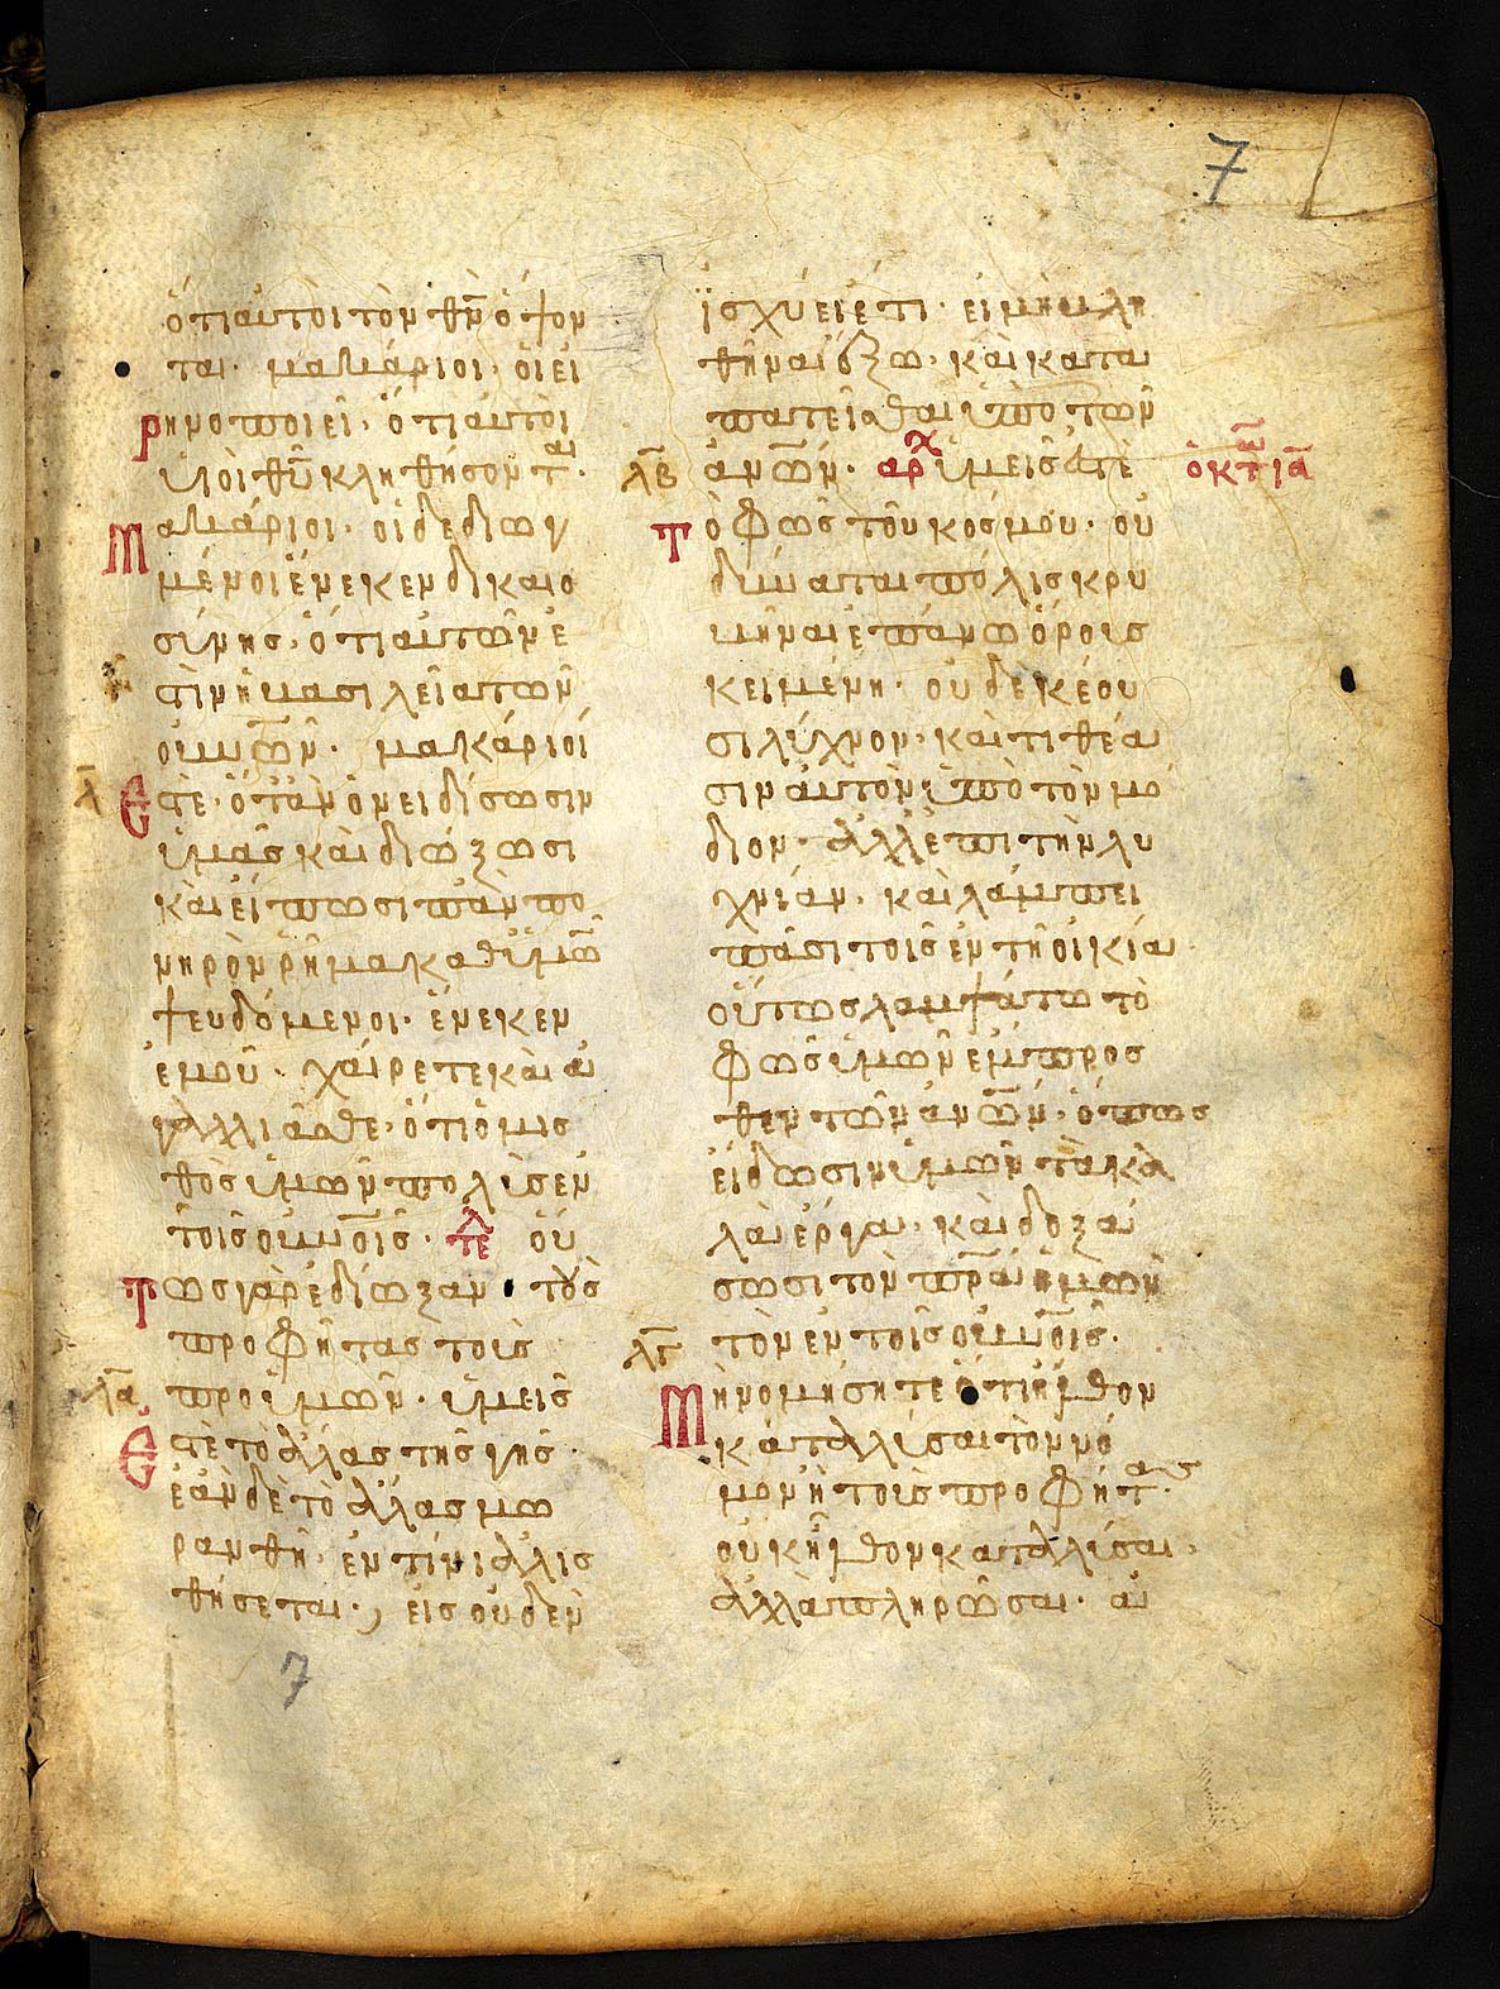 7
ὅτι αὐτοὶ τὸν θν̄ ὄψον
ται· μακάριοι· οἱ εἰ
ρηνοποιεῖ· ὅτι αὐτοὶ
υἱοὶ θῡ κληθήσοντ̄αι·
Μακάριοι· οἱ δεδιωγ
μένοι ἕνεκεν δικαιο
σύνης· ὅτι αὐτῶν ἐ
στὶν ἡ βασιλεία τῶν
οὐνῶν· μακάριοί
λ̄ Ἐστε· ὅταν ὀνειδίσωσιν
ὑμᾶς καὶ διώξωσι
καὶ εἴπωσι πᾶν πο
νηρὸν ῥῆμα καθ ὑμῶ
ψευδόμενοι· ἕνεκεν
ἐμοῦ· χαίρετε καὶ ἀ
γαλλιᾶσθε· ὅτι ὁ μισ
θὸς ὑμῶν πολὺς ἐν
τοῖς οὐνοῖς· τελ οὕ
Τως γὰρ ἐδίωξαν τοὺς
προφήτας τοὺς
λ̄ᾱ προ ὑμῶν· ὑμεῖς
Ἐστὲ τὸ ἅλας τῆς γῆς·
ἐὰν δὲ τὸ ἅλας μω
ρανθῆ· ἐν τίνι ἁλισ
θήσεται·, εἰς οὐδὲν
7
ἰσχύει ἔτι· εἰ μὴ βλη
θῆναι ἔξω· καὶ κατα
πατεῖσθαι ὑπὸ τῶν
λ̄β̄ ἀνῶν· αρχ ὑμεῖς ἐστὲ
Τὸ φῶς τοῦ κόσμου· οὐ
δύναται πόλις κρυ
βῆναι ἐπάνω ὄρους
κειμένη· οὐδὲ κέου
σι λύχνον· καὶ τιθέα
σιν αὐτὸν ὑπὸ τὸν μό
διον· ἀλλ ἐπι τὴν λυ
χνίαν· καὶ λάμπει
πᾶσι τοῖς ἐν τῆ οἰκία
οὕτως λαμψάτω τὸ
φῶς ὑμῶν ἔμπροσ
θεν τῶν ἀνῶν· ὅπως
εἴδωσιν ὑμῶν τὰ κα
λὰ ἔργα· καὶ δοξά
σωσι τὸν πρ̄α ἡμῶν
λ̄γ̄ τὸν ἐν τοῖς οὐνοῖς·
Μὴ νομήσητε ὅτι ἦλθον
καταλλύσαι τὸν νό
μον ἢ τοὺς προφήτας·
οὐκ ἦλθον καταλλύσαι·
ἀλλὰ πληρῶσαι· ἀ